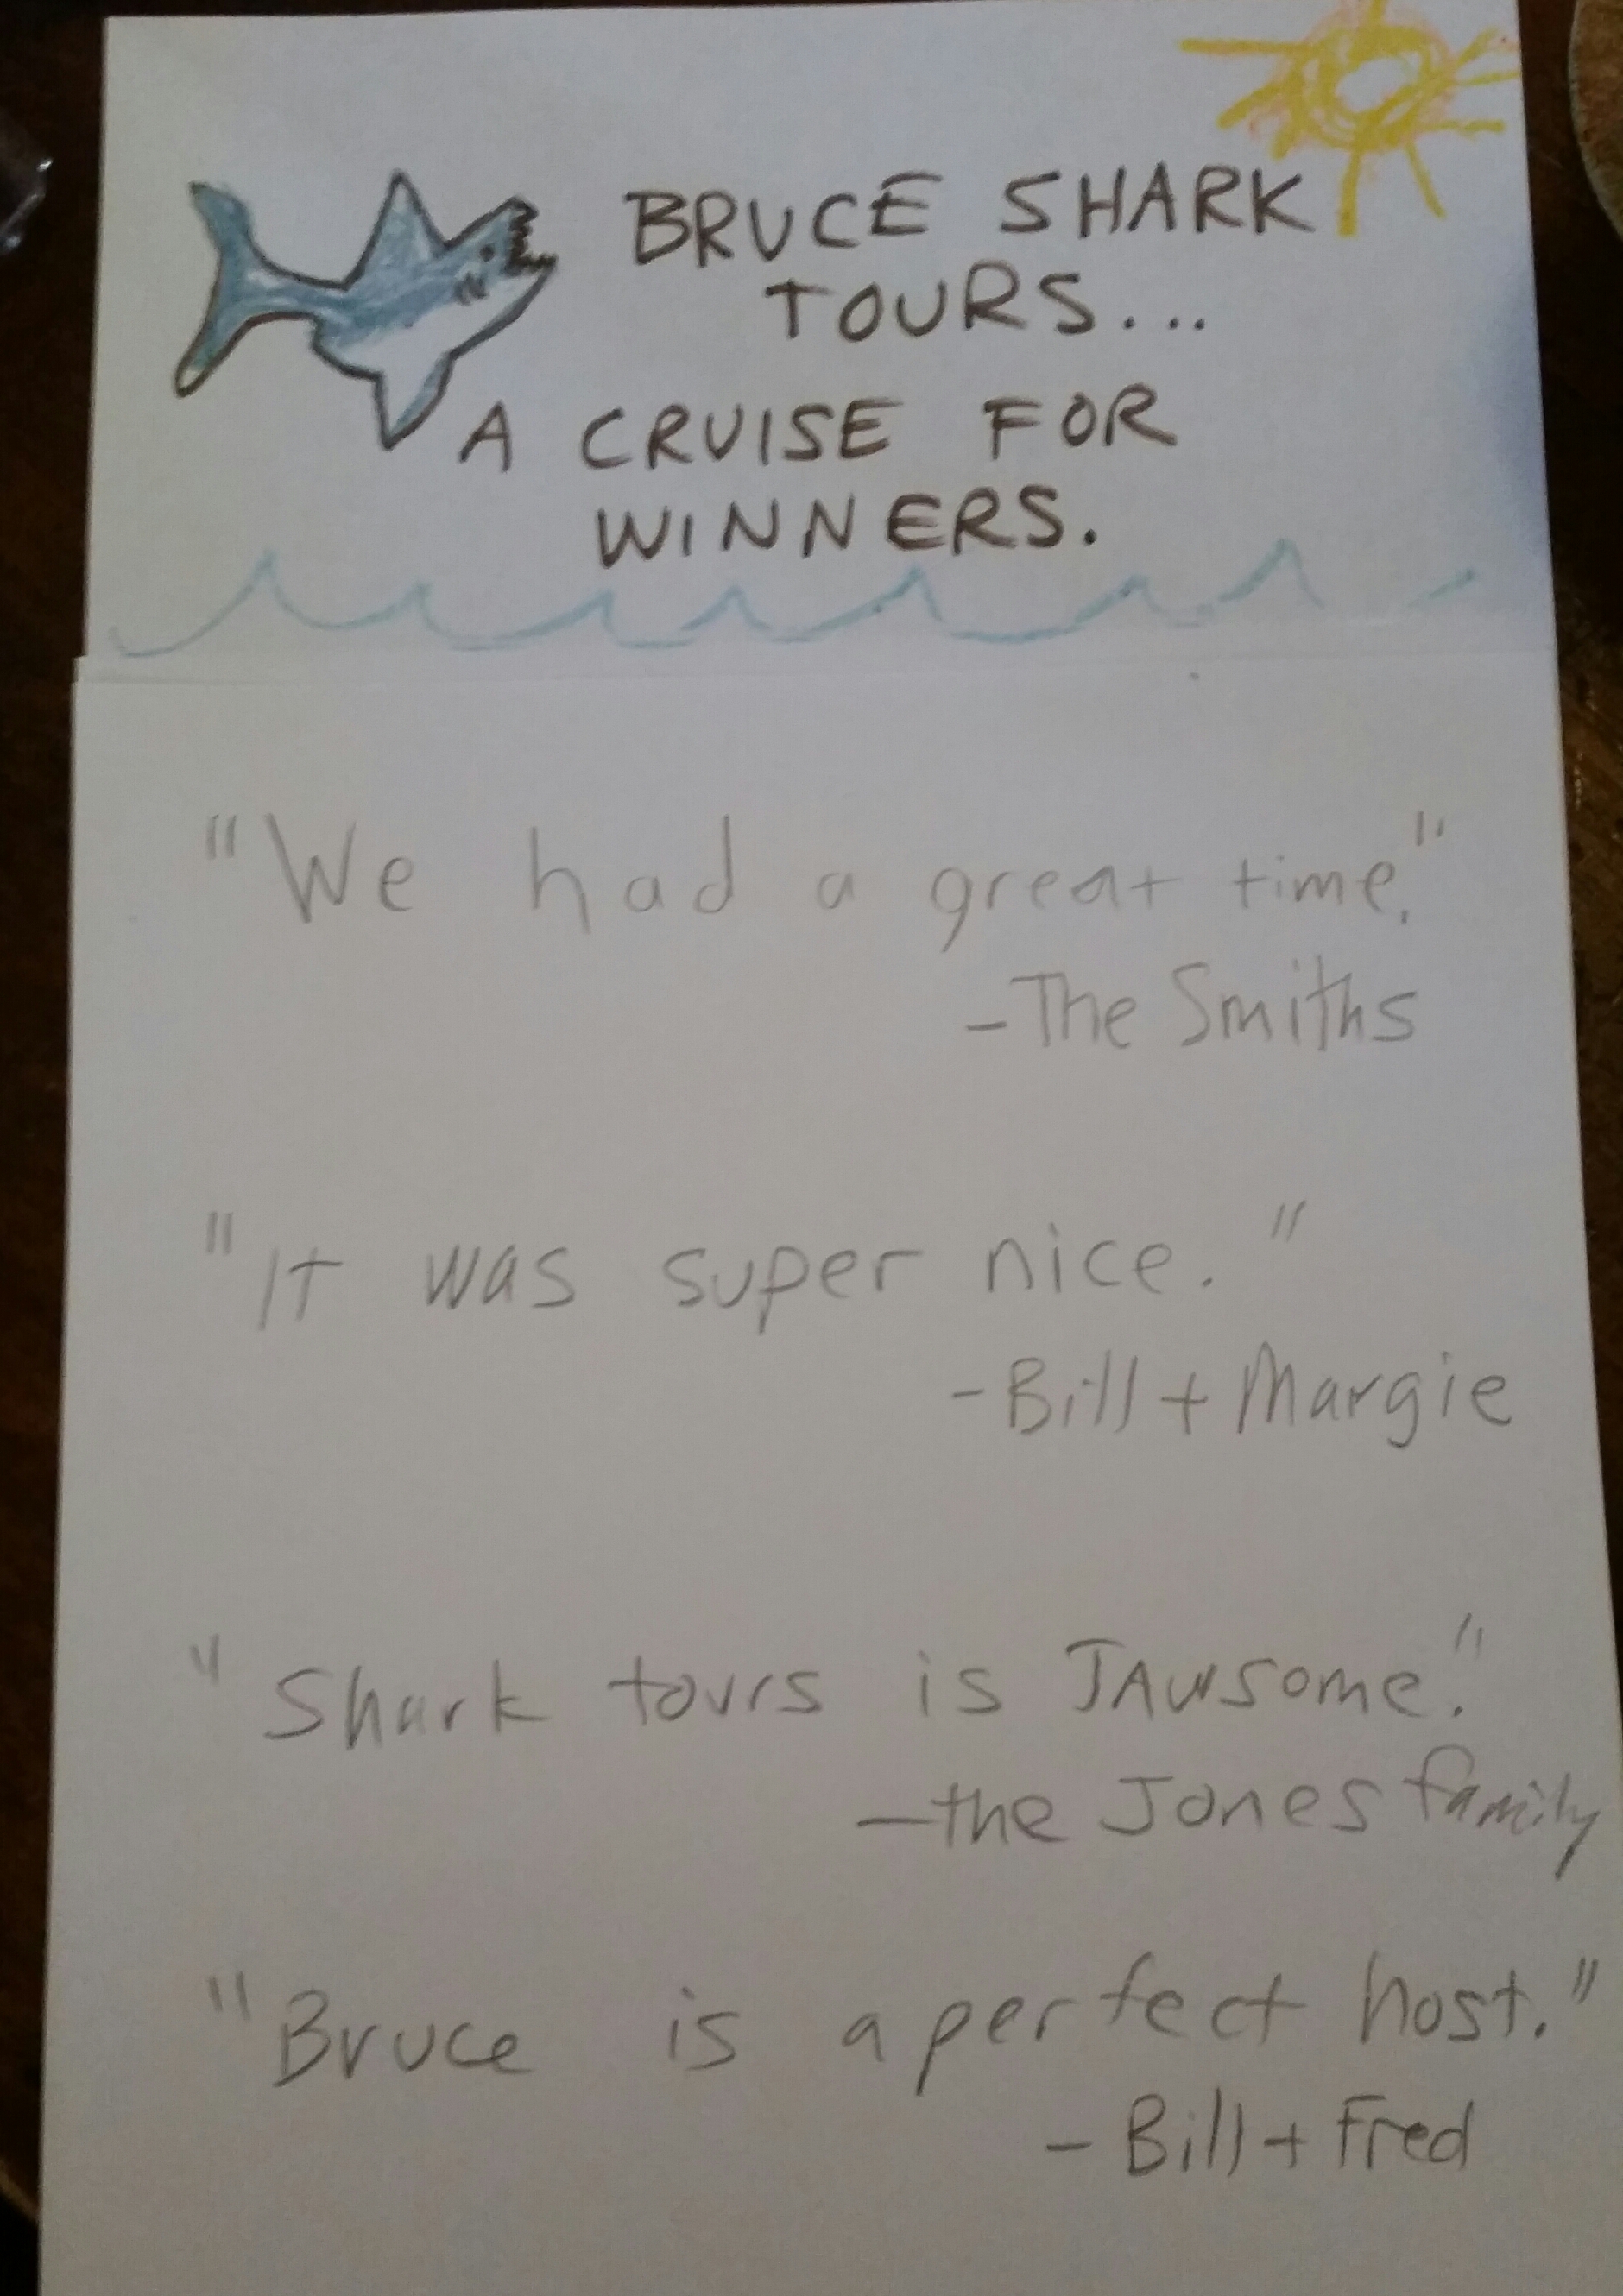 BRUCE SHARK
TOURS...
A CRUISE FOR
WINNERS.
"We had a great time."
-The Smiths
"It was super nice."
-Bill + Margie
"Shark tours is JAWsome."
-the Jones family
"Bruce is a perfect host."
- Bill + Fred